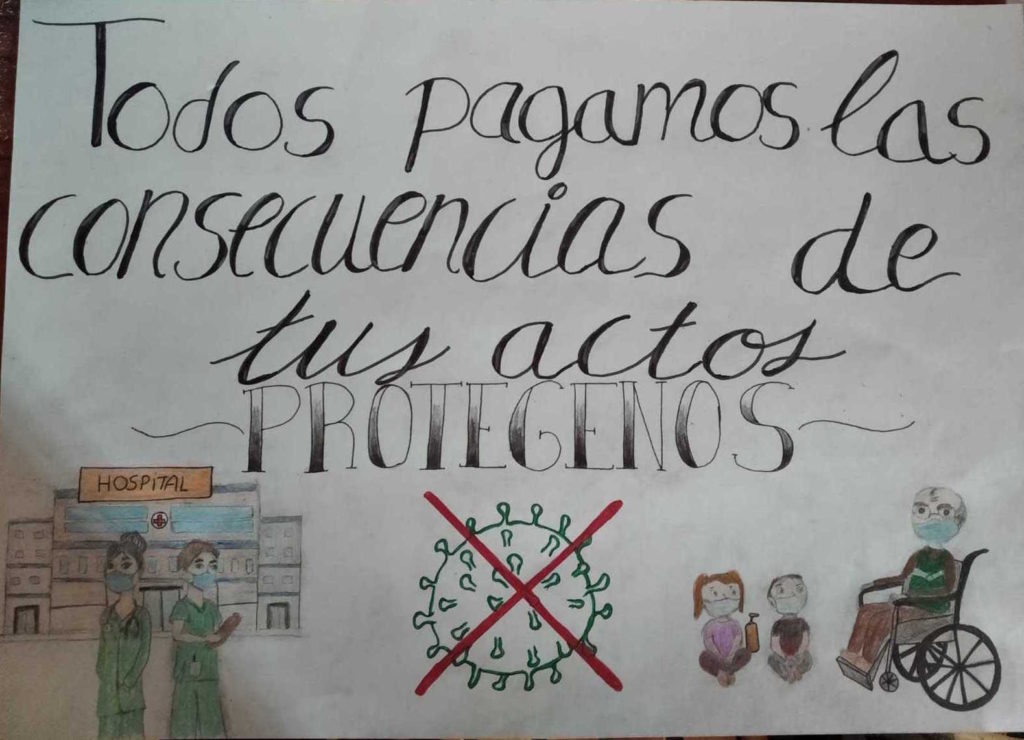 Todos pagamos las
consecuencias de
tus actos
PROTEGENOS
HOSPITAL